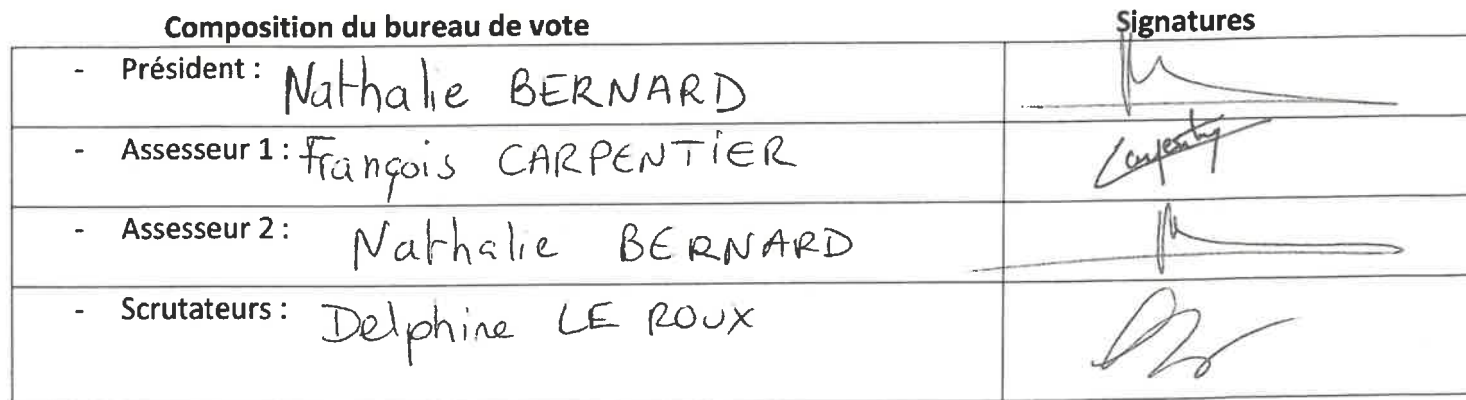 Composition du bureau de vote Signatures
- Président : Nathalie BERNARD
- Assesseur 1 : François CARPENTIER Carpentier
- Assesseur 2 : Nathalie BERNARD
- Scrutateurs : Delphine LE ROUX